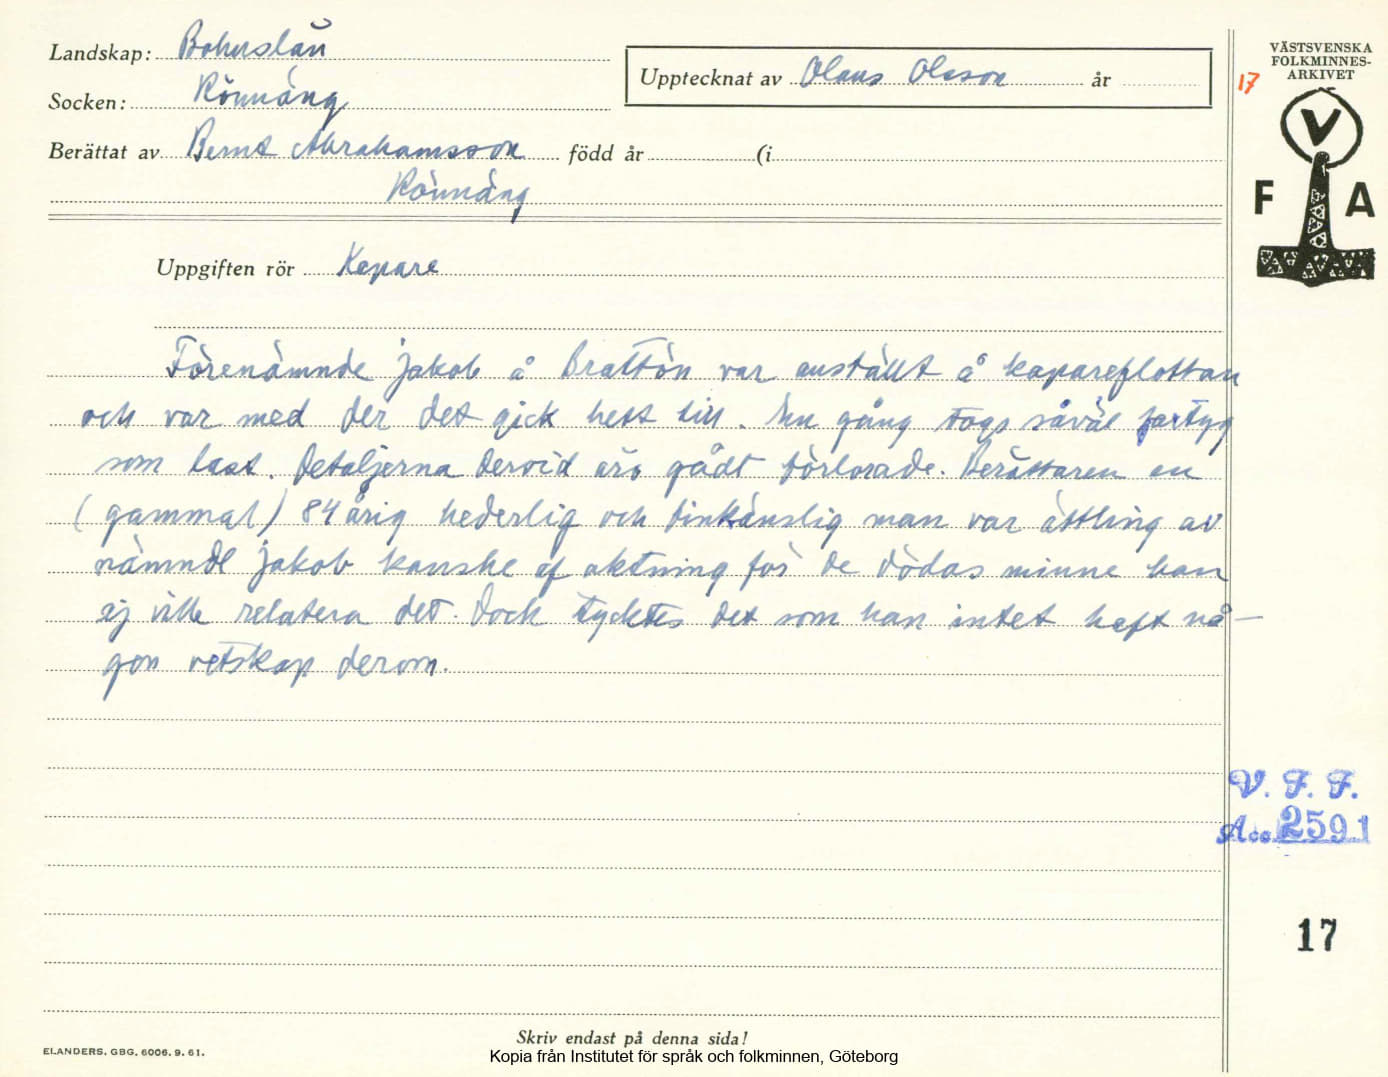 Landskap: Bohuslän
Socken: Rönnäng
Berättat av Bernt Abrahamsson född år (i
Rönnäng
Upptecknat av Olaus Olsson år
17
VÄSTSVENSKA
FOLKMINNES-
ARKIVET
V
F A
Uppgiften rör Kapare
Förenämnde Jakob å Brattön var anställt å kapareflottan
och var med der det gick hett till. En gång togs såväl fartyg
som last. Detaljerna dervid äro gådt förlorade. Berättaren en
(gammal) 84 årig hederlig och finkänslig man var ättling av
nämnde Jakob kanske af aktning för de dödas minne han
ej ville relatera det. Dock tycktes det som han intet haft nå-
gon vetskap derom.
V. F. F.
Acc. 2591
17
Skriv endast på denna sida!
ELANDERS. GBG. 6006. 9. 61.
Kopia från Institutet för språk och folkminnen, Göteborg